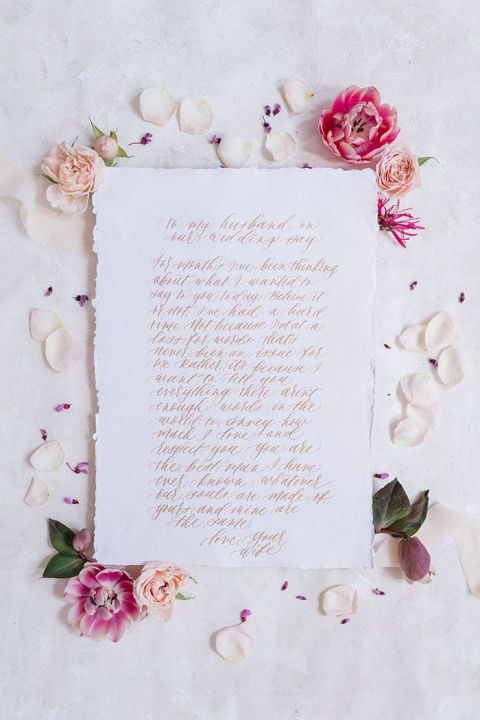 to my husband on
our wedding day
For months I've been thinking
about what I wanted to
say to you today. Believe it
or not I've had a hard
time. Not because I'm at a
loss for words that's
never been an issue for
me Rather, it's because I
want to tell you
everything there aren't
enough words in the
world to convey how
much I love and
respect you you are
the best man I have
ever known whatever
our souls are made of
yours and mine are
the same.
Love Your
Wife